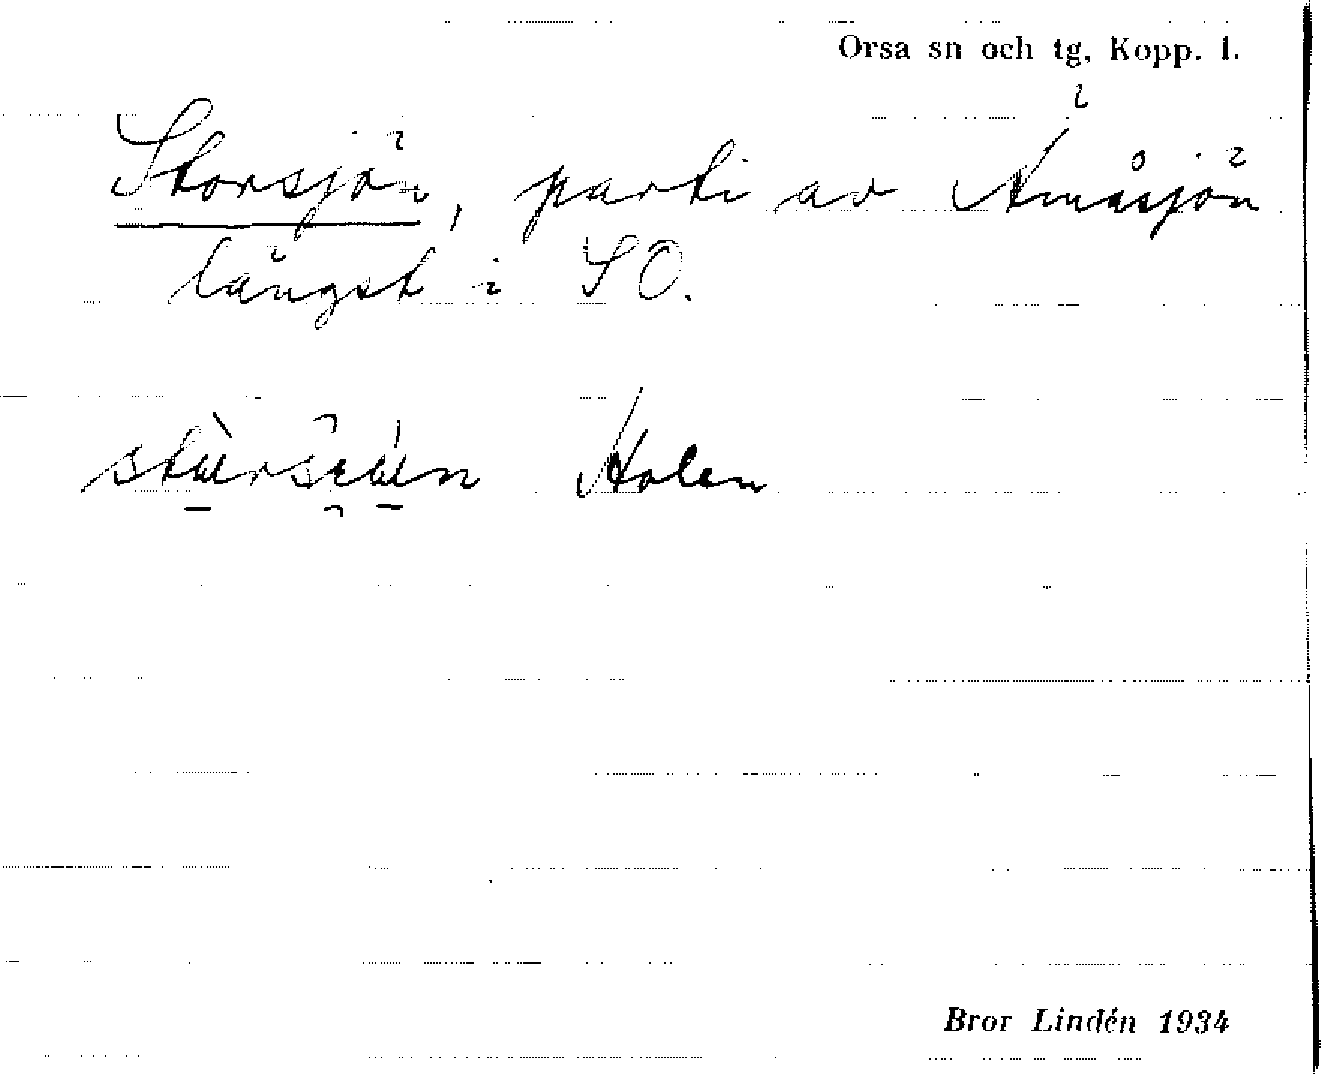 Orsa sn och tg, Kopp. l.
Storsjön, parti av Åmåsjön
längst i SO.
Holen
Bror Lindén 1934